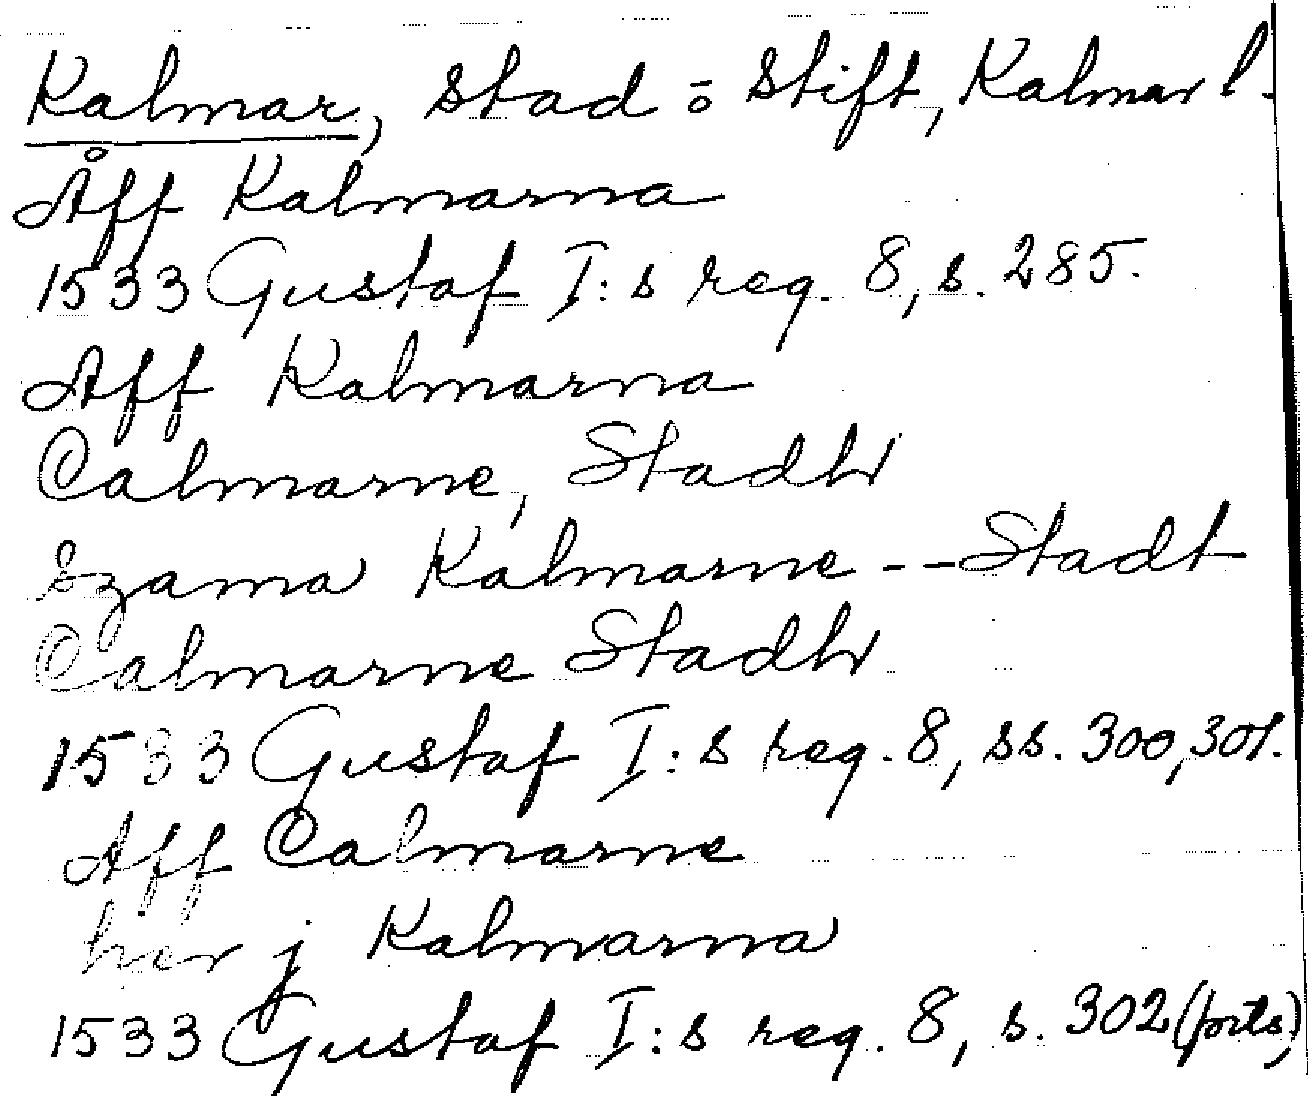 Kalmar, stad o stift, Kalmar l.
Åff Kalmarna
1533 Gustaf I:s reg. 8, s. 285.
Aff Kalmarna
Calmarne, Stadh
Szama Kalmarne -- Stadt
Calmarne Stadh
1533 Gustaf I:s reg. 8, ss. 300, 301.
Aff Calmarne
her j Kalmarna
1533 Gustaf I:s reg. 8, s. 302 (forts)